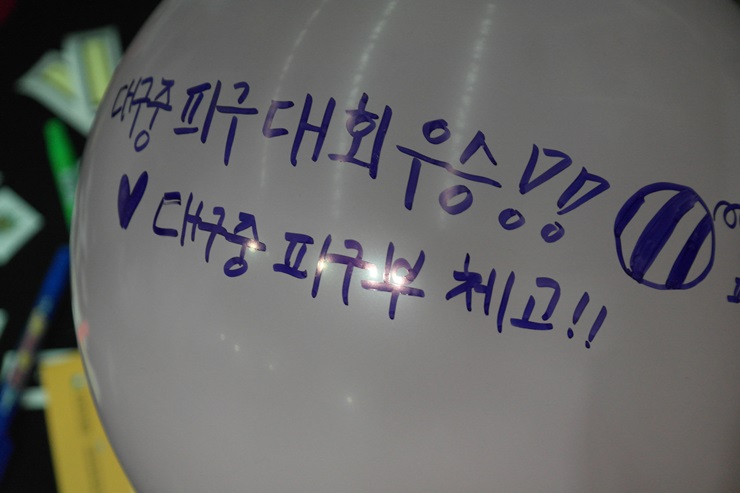 대구중 피구 대회 우승!!
♥ 대구중 피구부 체고!!